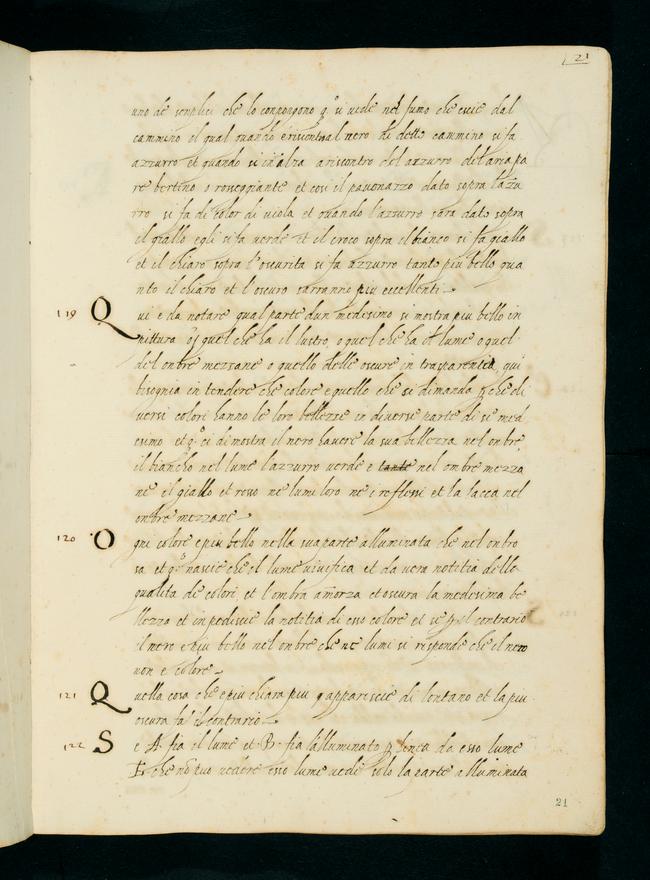 21
uno de senplici che lo conpongono q.o si vede nel fumo che escie dal
cammino el qual quando e riscontra al nero di detto cammino si fa
azzurro et quando si inalza a riscontro del azzurro del aria pa
re bertino o rosseggiante et cosi il pavonazzo dato sopra l'azu
rro si fa di color di viola et quando l'azzurro sara dato sopra
il giallo egli si fa verde et il croco sopra el bianco si fa giallo
et el chiaro sopra l'oscurita si fa azzurro tanto piu bello qua
nto il chiaro et l'oscuro sarranno piu eccellenti
119 Qui e da notare qual parte dun medesimo si mostra piu bello in
pittura o quel che ha il lustro, o quel che ha el lume o quel
del onbre mezzane o quello delle oscure in trasparentia, qui
bisognia intendere che colore e quello che si dimanda p che di
versi colori hanno le loro bellezze in diverse parte di se med
esimo et q.o ci dimostra il nero havere la sua bellezza nel onbre
il biancho nel lume l'azzurro verde e tante nel ombre mezza
ne el giallo et rosso ne lumi loro ne i reflessi et la lacca nel
onbre mezzane
120 Ogni colore e piu bello nella sua parte alluminata che nel onbro
sa et q.o nascie che el lume vivifica et da vera notitia delle
qualita de colori et l'ombra amorza et oscura la medesima be
llezza et inpediscie la notitia di esso colore et se p el contrario
il nero e piu bello nel onbre che ne lumi si risponde che el nero
non e colore
121 Quella cosa che e piu chiara piu appariscie di lontano et la piu
oscura fa il contrario
122 Se A. fia il lume et B. fia l'alluminato p linea da esso lume
E. che no puo vedere esso lume vede solo la parte alluminata
21